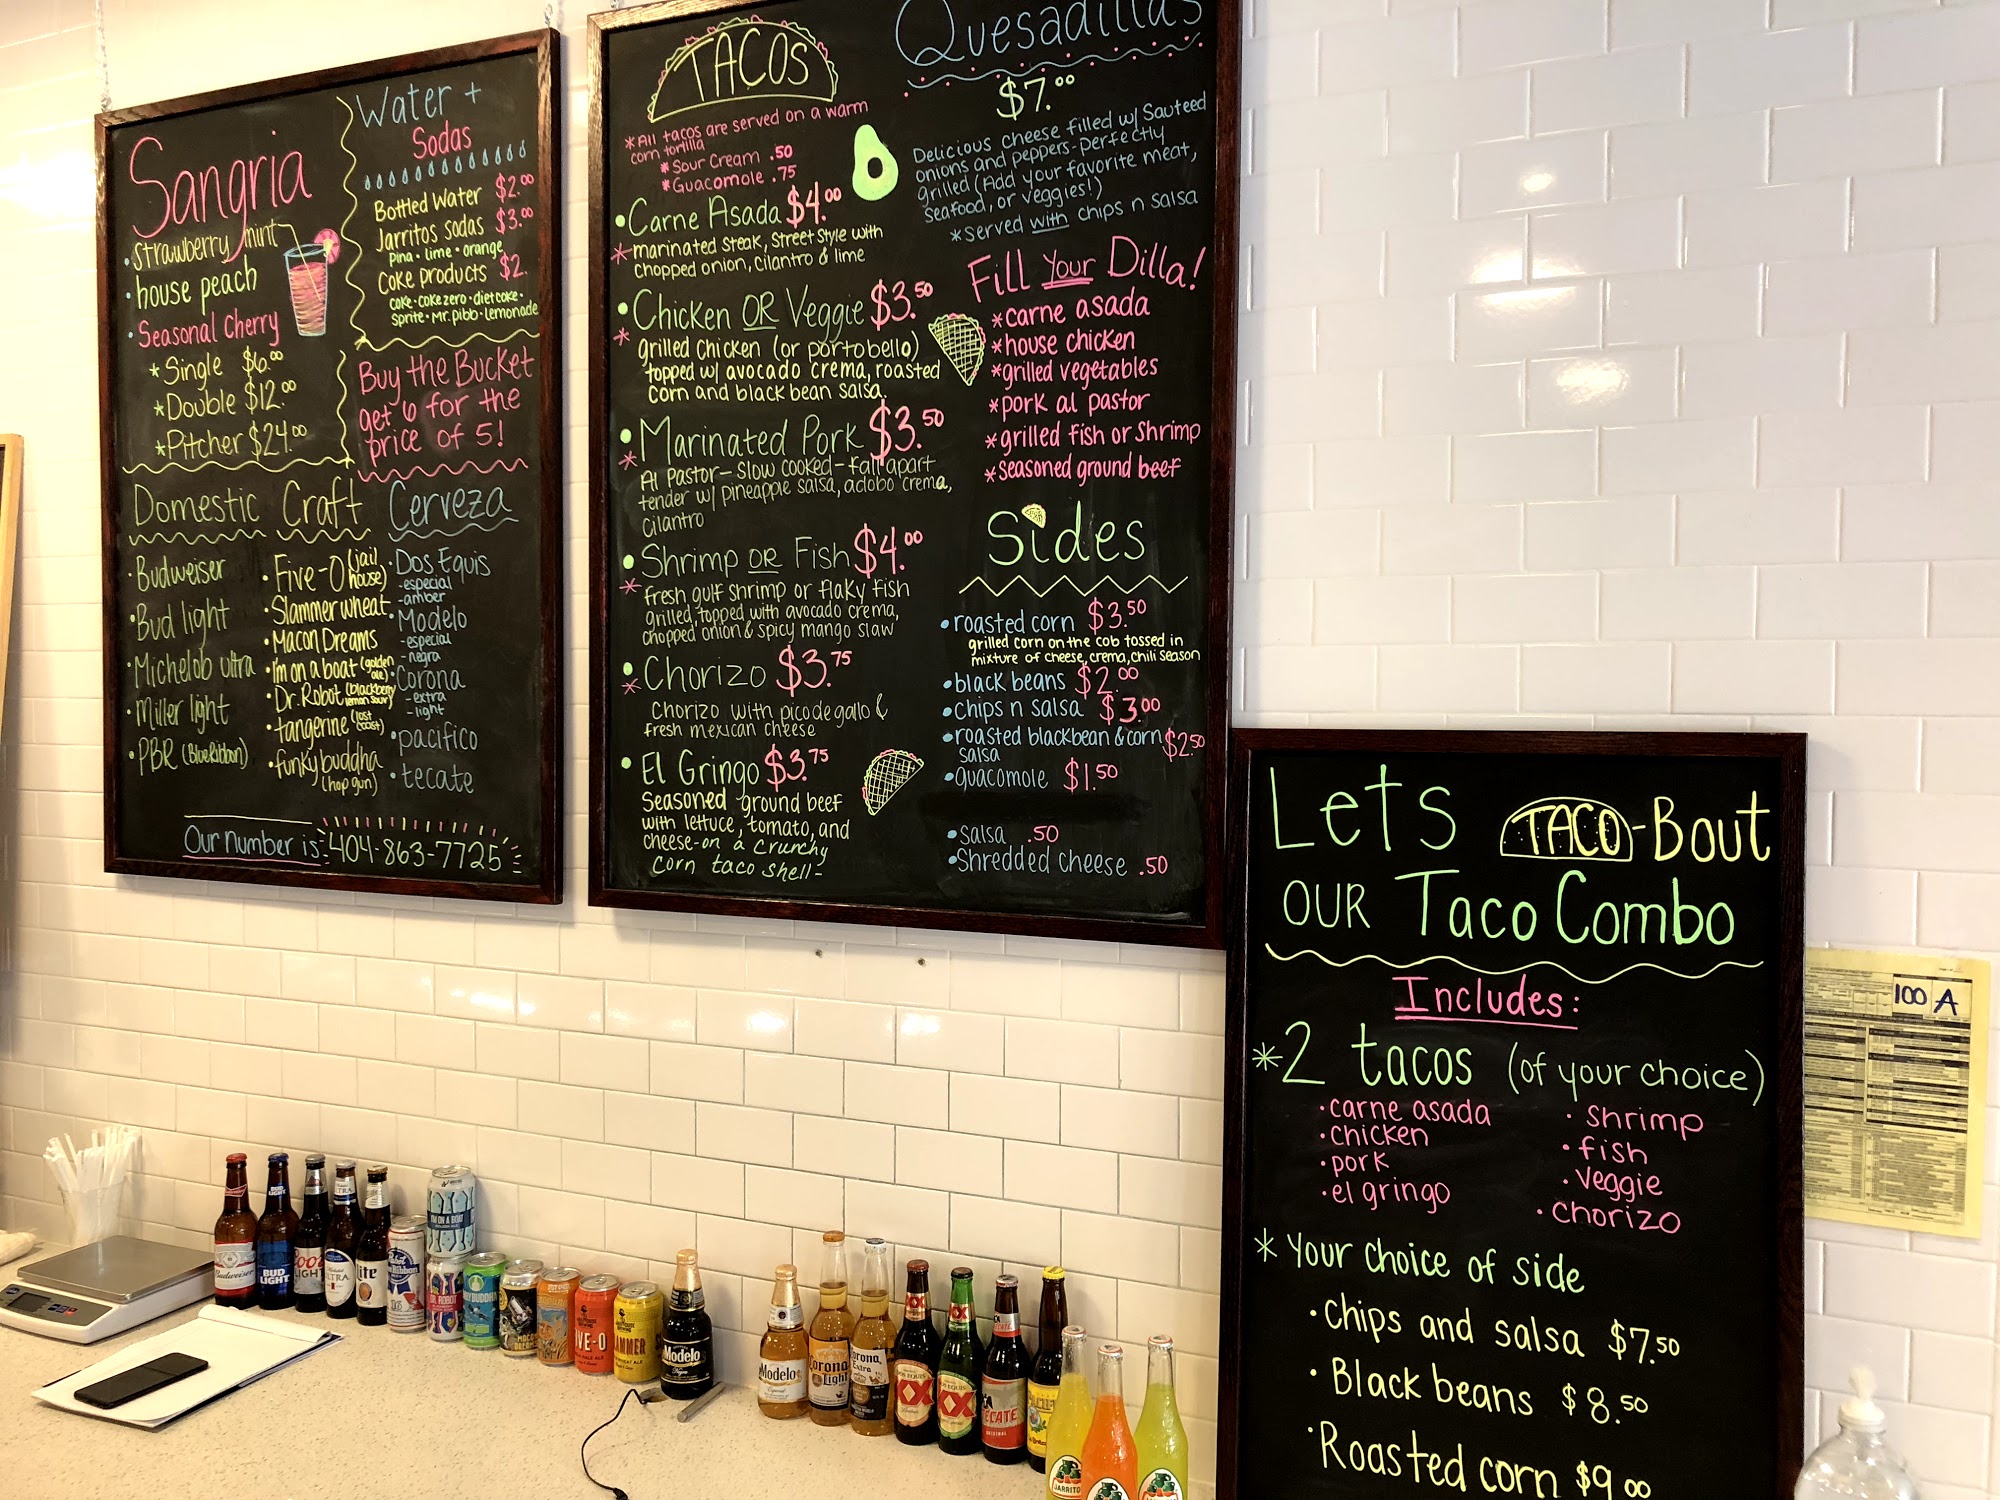 Sangria
• strawberry mint
• house peach
• Seasonal Cherry
* Single $6.00
* Double $12.00
* Pitcher $24.00
Water +
Sodas
Bottled Water $2.00
Jarritos sodas $3.00
pina • lime • orange
Coke products $2.
coke • coke zero • diet coke •
sprite • Mr. pibb • lemonade
Buy the Bucket
get 6 for the
price of 5!
Domestic
• Budweiser
• Bud light
• Michelob ultra
• Miller light
• PBR (Blue Ribbon)
Craft
• Five-O (jail house)
• Slammer wheat
• Macon Dreams
• I'm on a boat (golden ale)
• Dr. Robot (blackberry lemon sour)
• tangerine (lost coast)
• funky buddha
(hop gun)
Cerveza
• Dos Equis
- especial
- amber
• Modelo
- especial
- negra
• Corona
- extra
- light
• pacifico
• tecate
Our number is: 404-863-7725
TACOS
* All tacos are served on a warm
corn tortilla
* Sour Cream .50
* Guacomole .75
• Carne Asada $4.00
* marinated steak, street style with
chopped onion, cilantro & lime
• Chicken OR Veggie $3.50
* grilled chicken (or portobello)
topped w/ avocado crema, roasted
corn and black bean salsa.
• Marinated Pork $3.50
* Al Pastor - slow cooked - fall apart
tender w/ pineapple salsa, adobo crema,
cilantro
• Shrimp OR Fish $4.00
* fresh gulf shrimp or flaky fish
grilled, topped with avocado crema,
chopped onion & spicy mango slaw
• Chorizo $3.75
* Chorizo with pico de gallo &
fresh mexican cheese
• El Gringo $3.75
Seasoned ground beef
with lettuce, tomato, and
cheese - on a crunchy
corn taco shell -
Quesadillas
$7.00
Delicious cheese filled w/ Sauteed
onions and peppers - perfectly
grilled (Add your favorite meat,
seafood, or veggies!)
* served with chips n salsa
Fill Your Dilla!
* carne asada
* house chicken
* grilled vegetables
* pork al pastor
* grilled fish or shrimp
* seasoned ground beef
Sides
• roasted corn $3.50
grilled corn on the cob tossed in
mixture of cheese, crema, chili season
• black beans $2.00
• chips n salsa $3.00
• roasted blackbean & corn $2.50
salsa
• guacomole $1.50
• salsa .50
• Shredded cheese .50
Lets TACO-Bout
OUR Taco Combo
Includes:
* 2 tacos (of your choice)
• carne asada
• chicken
• pork
• el gringo
• shrimp
• fish
• veggie
• chorizo
* Your choice of side
• Chips and salsa $7.50
• Black beans $8.50
• Roasted corn $9.00
100 A
Budweiser
BUD LIGHT
BUD
LIGHT
Coors
LIGHT
ULTRA
Lite
I'M ON A BOAT
DR. ROBOT
Modelo
Modelo
Especial
Corona
Light
Corona
Extra
XX
XX
TECATE
JARRITOS